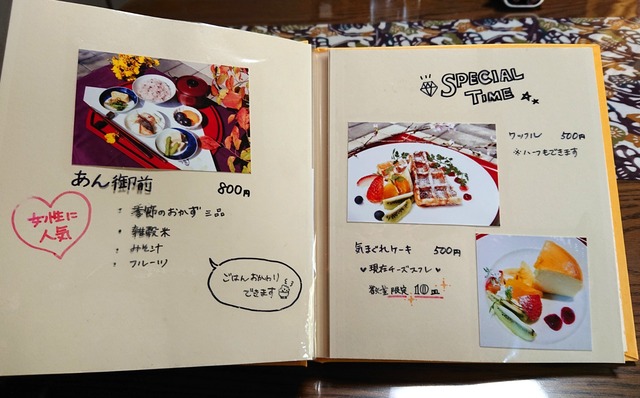 あん御前 800円
・季節のおかず三品
・雑穀米
・みそ汁
・フルーツ
女性に
人気
ごはんおかわり
できます
SPECIAL
TIME
ワッフル 500円
※ハーフもできます
気まぐれケーキ 500円
♥現在チーズスフレ♥
数量限定 10皿